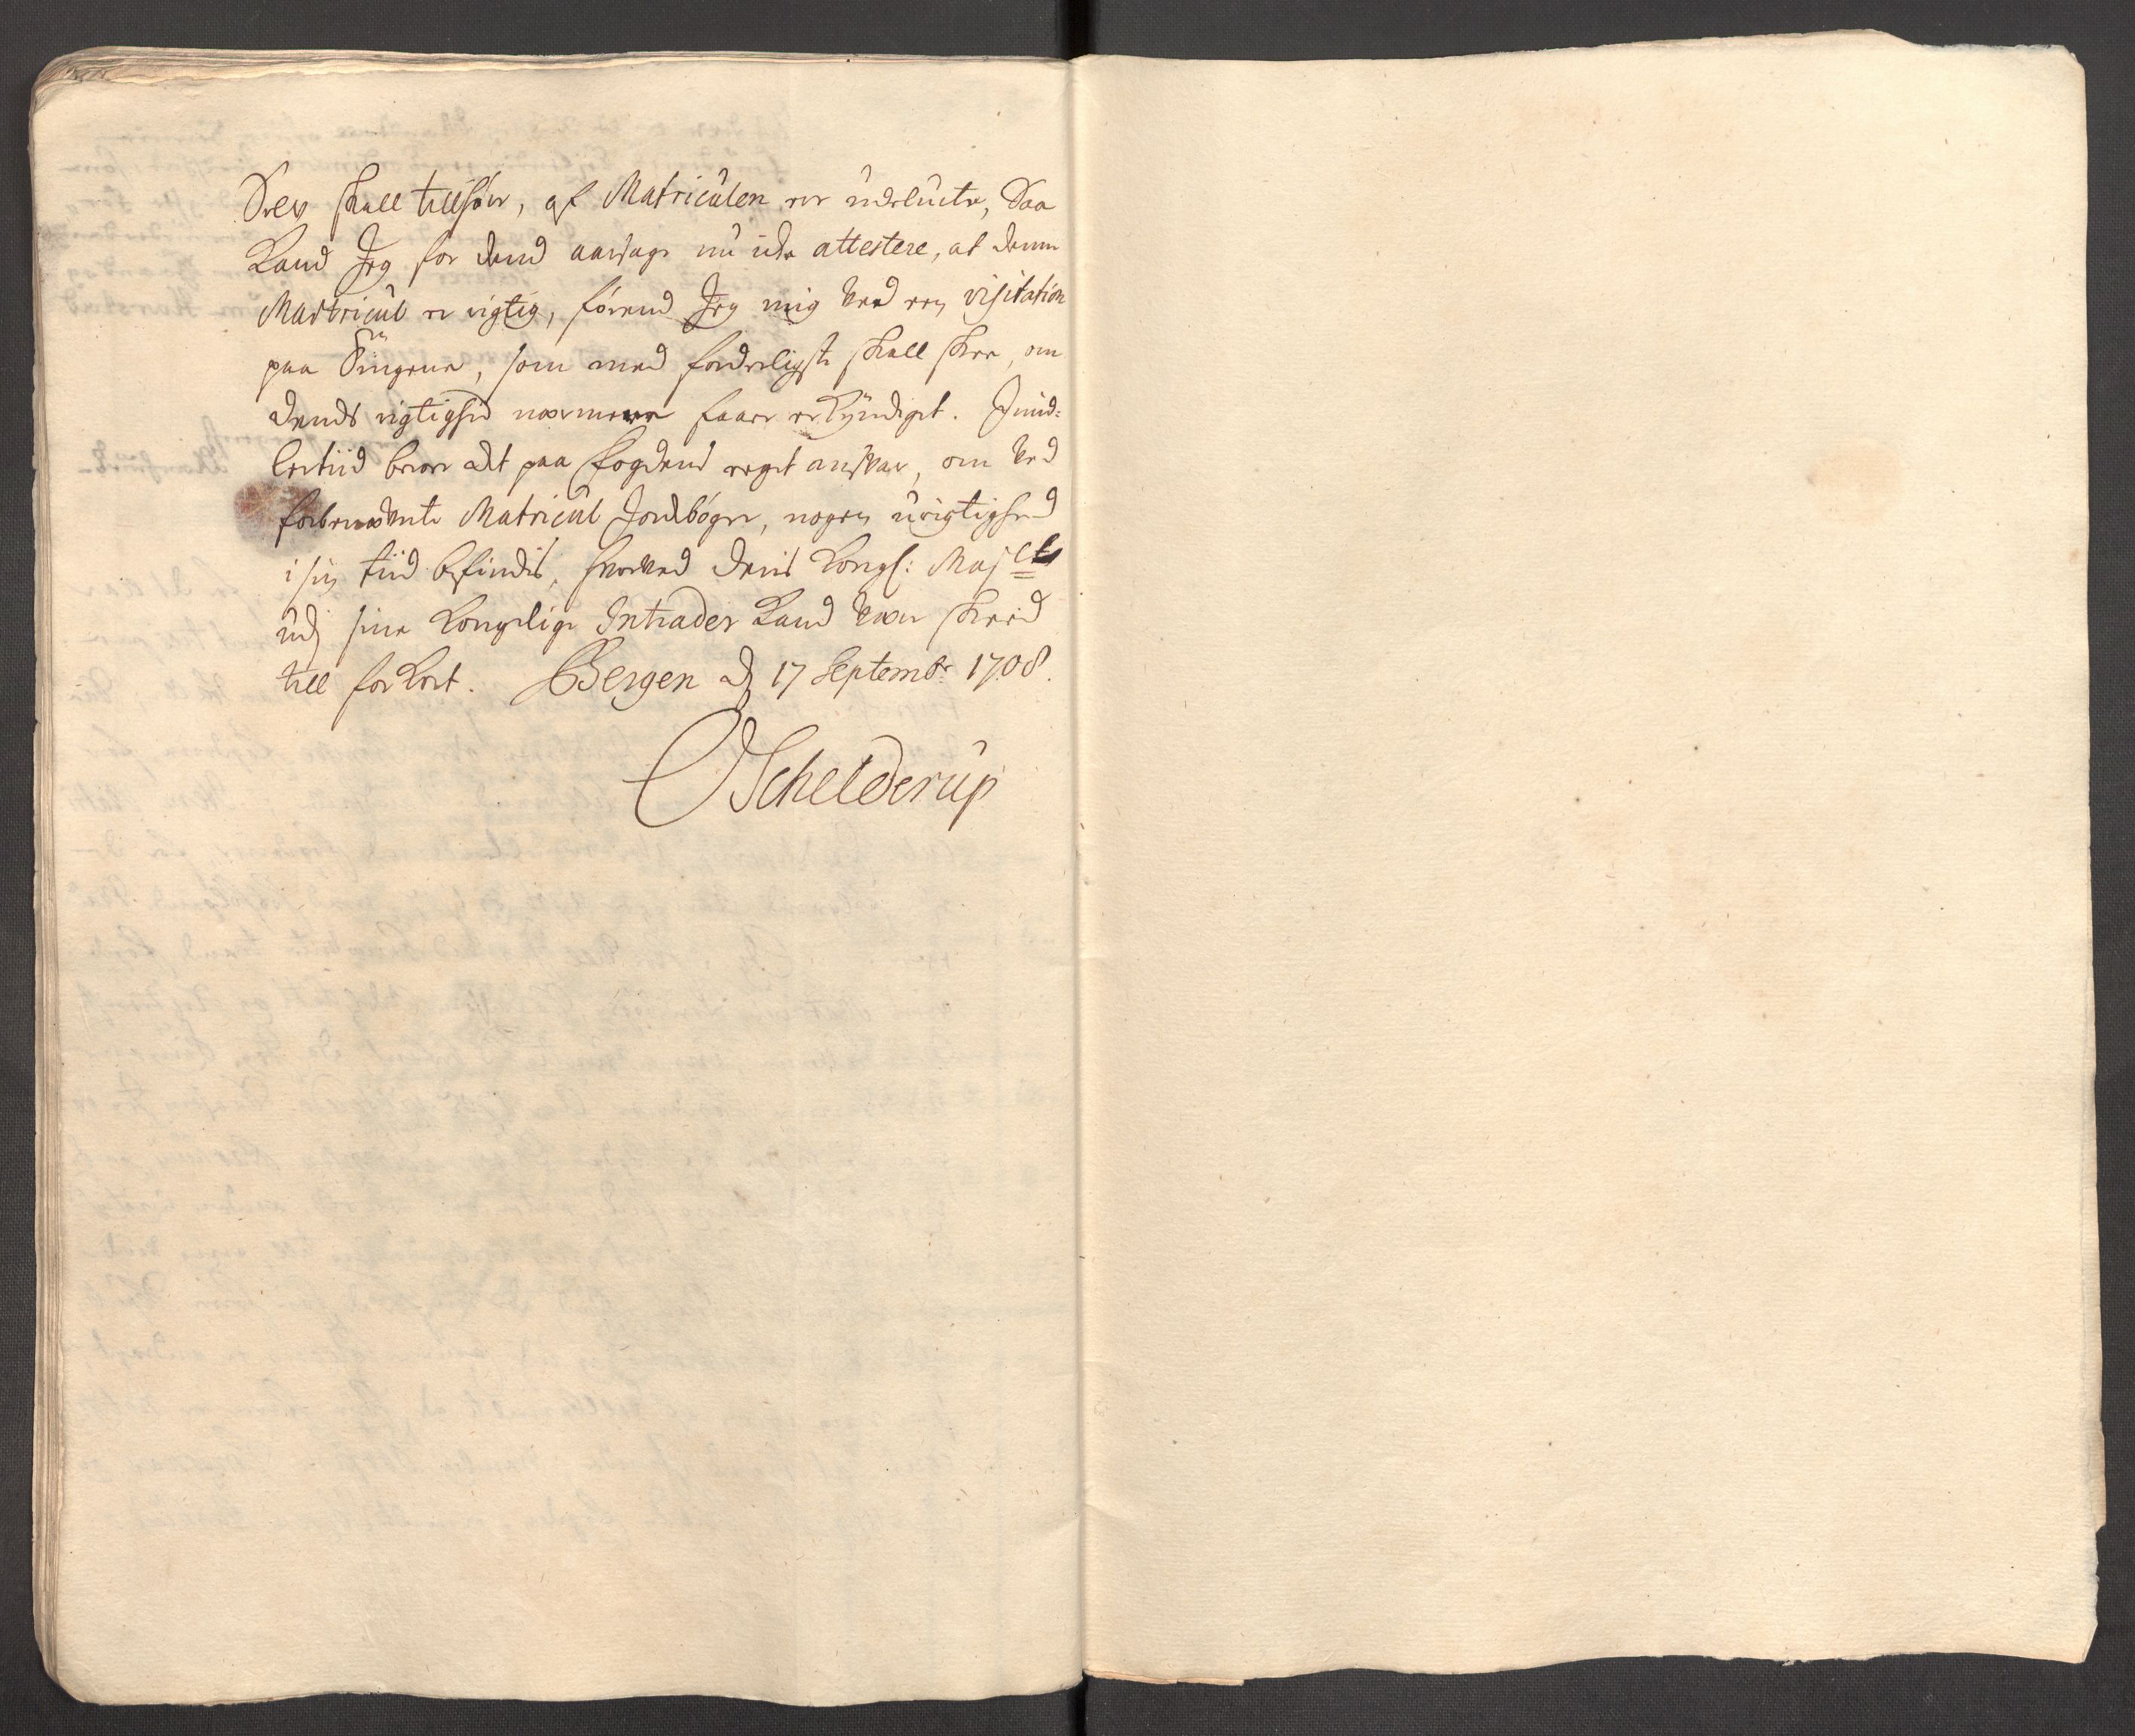 Dreng skall tillhøre, af Matriculen er udeluct, Saa
Kand Jeg for dend aarsage nu icke attestere, at denne
Matricul er rigtig, førend Jeg mig ved een visitation
paa Tingene, som med forderligste skall skee, om
dends rigtighed nærmere faaer erkyndiget. Imid-
lertiid beroer alt paa Fogdens eget ansvar, om ved
forbenævnte Matricul Jordbøger, nogen urigtighed
i sin tiid befindis, hvorved Hans Kongl: Majets
udj sine Kongelige Intrader Kand være skeed
till forkort. Bergen d 17 Septembr 1708.
O Schelderup